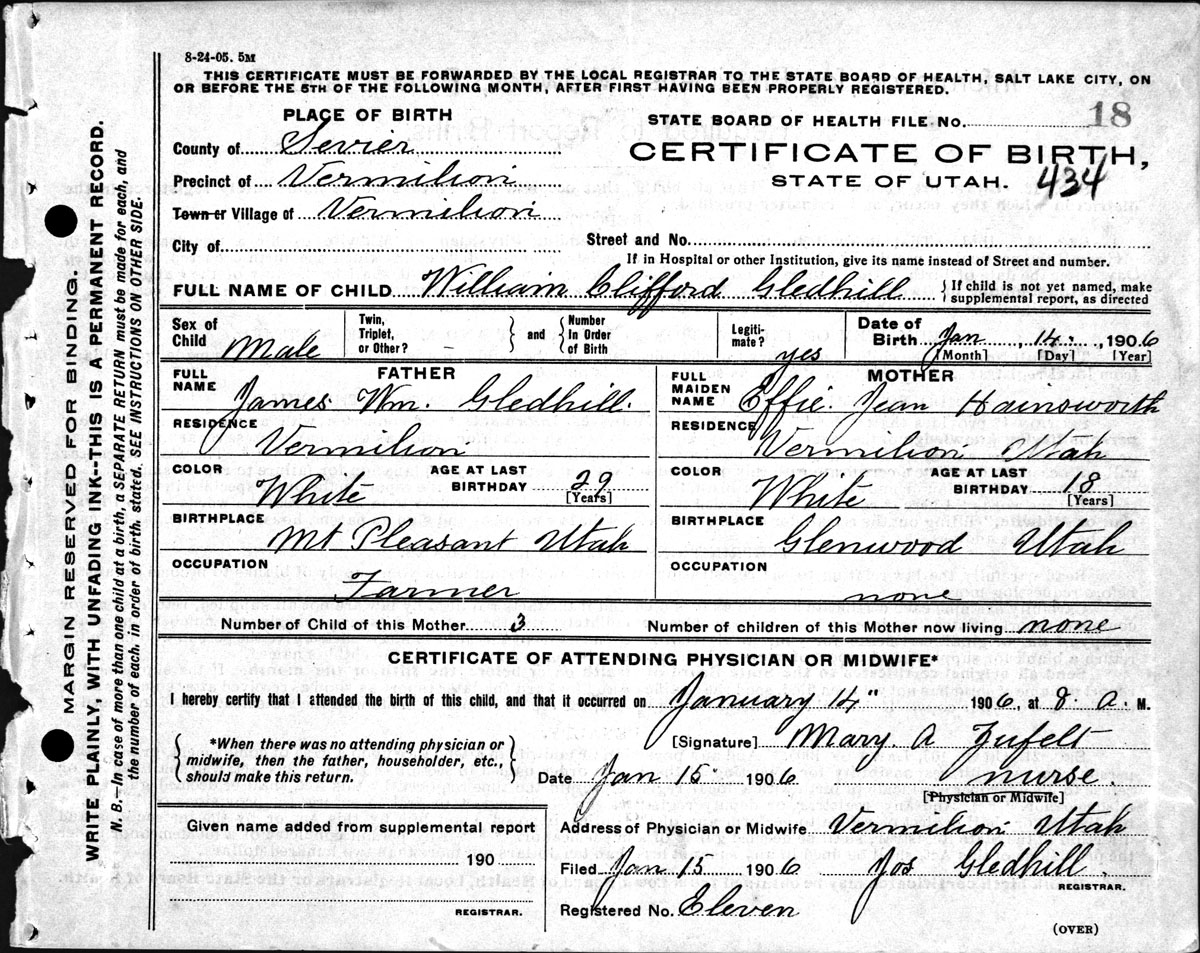 8-24-05. 5M
THIS CERTIFICATE MUST BE FORWARDED BY THE LOCAL REGISTRAR TO THE STATE BOARD OF HEALTH, SALT LAKE CITY, ON
OR BEFORE THE 5TH OF THE FOLLOWING MONTH, AFTER FIRST HAVING BEEN PROPERLY REGISTERED.
MARGIN RESERVED FOR BINDING.
WRITE PLAINLY, WITH UNFADING INK--THIS IS A PERMANENT RECORD.
N. B.--In case of more than one child at a birth, a SEPARATE RETURN must be made for each, and
the number of each, in order of birth, stated. SEE INSTRUCTIONS ON OTHER SIDE.
PLACE OF BIRTH
County of Sevier
Precinct of Vermilion
Town or Village of Vermilion
City of
STATE BOARD OF HEALTH FILE No. 18
CERTIFICATE OF BIRTH,
STATE OF UTAH. 434
Street and No.
If in Hospital or other Institution, give its name instead of Street and number.
FULL NAME OF CHILD William Clifford Gledhill { If child is not yet named, make
supplemental report, as directed
Sex of Child Male
Twin, Triplet, or Other? -
} and { Number In Order of Birth
Legitimate? yes
Date of Birth Jan, 14, 1906
[Month] [Day] [Year]
FATHER
FULL NAME James Wm. Gledhill.
RESIDENCE Vermilion
COLOR White
AGE AT LAST BIRTHDAY 29
[Years]
BIRTHPLACE Mt Pleasant Utah
OCCUPATION Farmer
MOTHER
FULL MAIDEN NAME Effie Jean Hainsworth
RESIDENCE Vermilion Utah
COLOR White
AGE AT LAST BIRTHDAY 18
[Years]
BIRTHPLACE Glenwood Utah
OCCUPATION none
Number of Child of this Mother 3
Number of children of this Mother now living none
CERTIFICATE OF ATTENDING PHYSICIAN OR MIDWIFE*
I hereby certify that I attended the birth of this child, and that it occurred on January 14" 1906, at 8. a. M.
{ *When there was no attending physician or
midwife, then the father, householder, etc.,
should make this return. }
[Signature] Mary. A Zufelt
Date Jan 15" 1906 nurse
[Physician or Midwife]
Given name added from supplemental report
190
REGISTRAR.
Address of Physician or Midwife Vermilion Utah
Filed Jan 15 1906 Jos Gledhill
REGISTRAR.
Registered No. Eleven
(OVER)